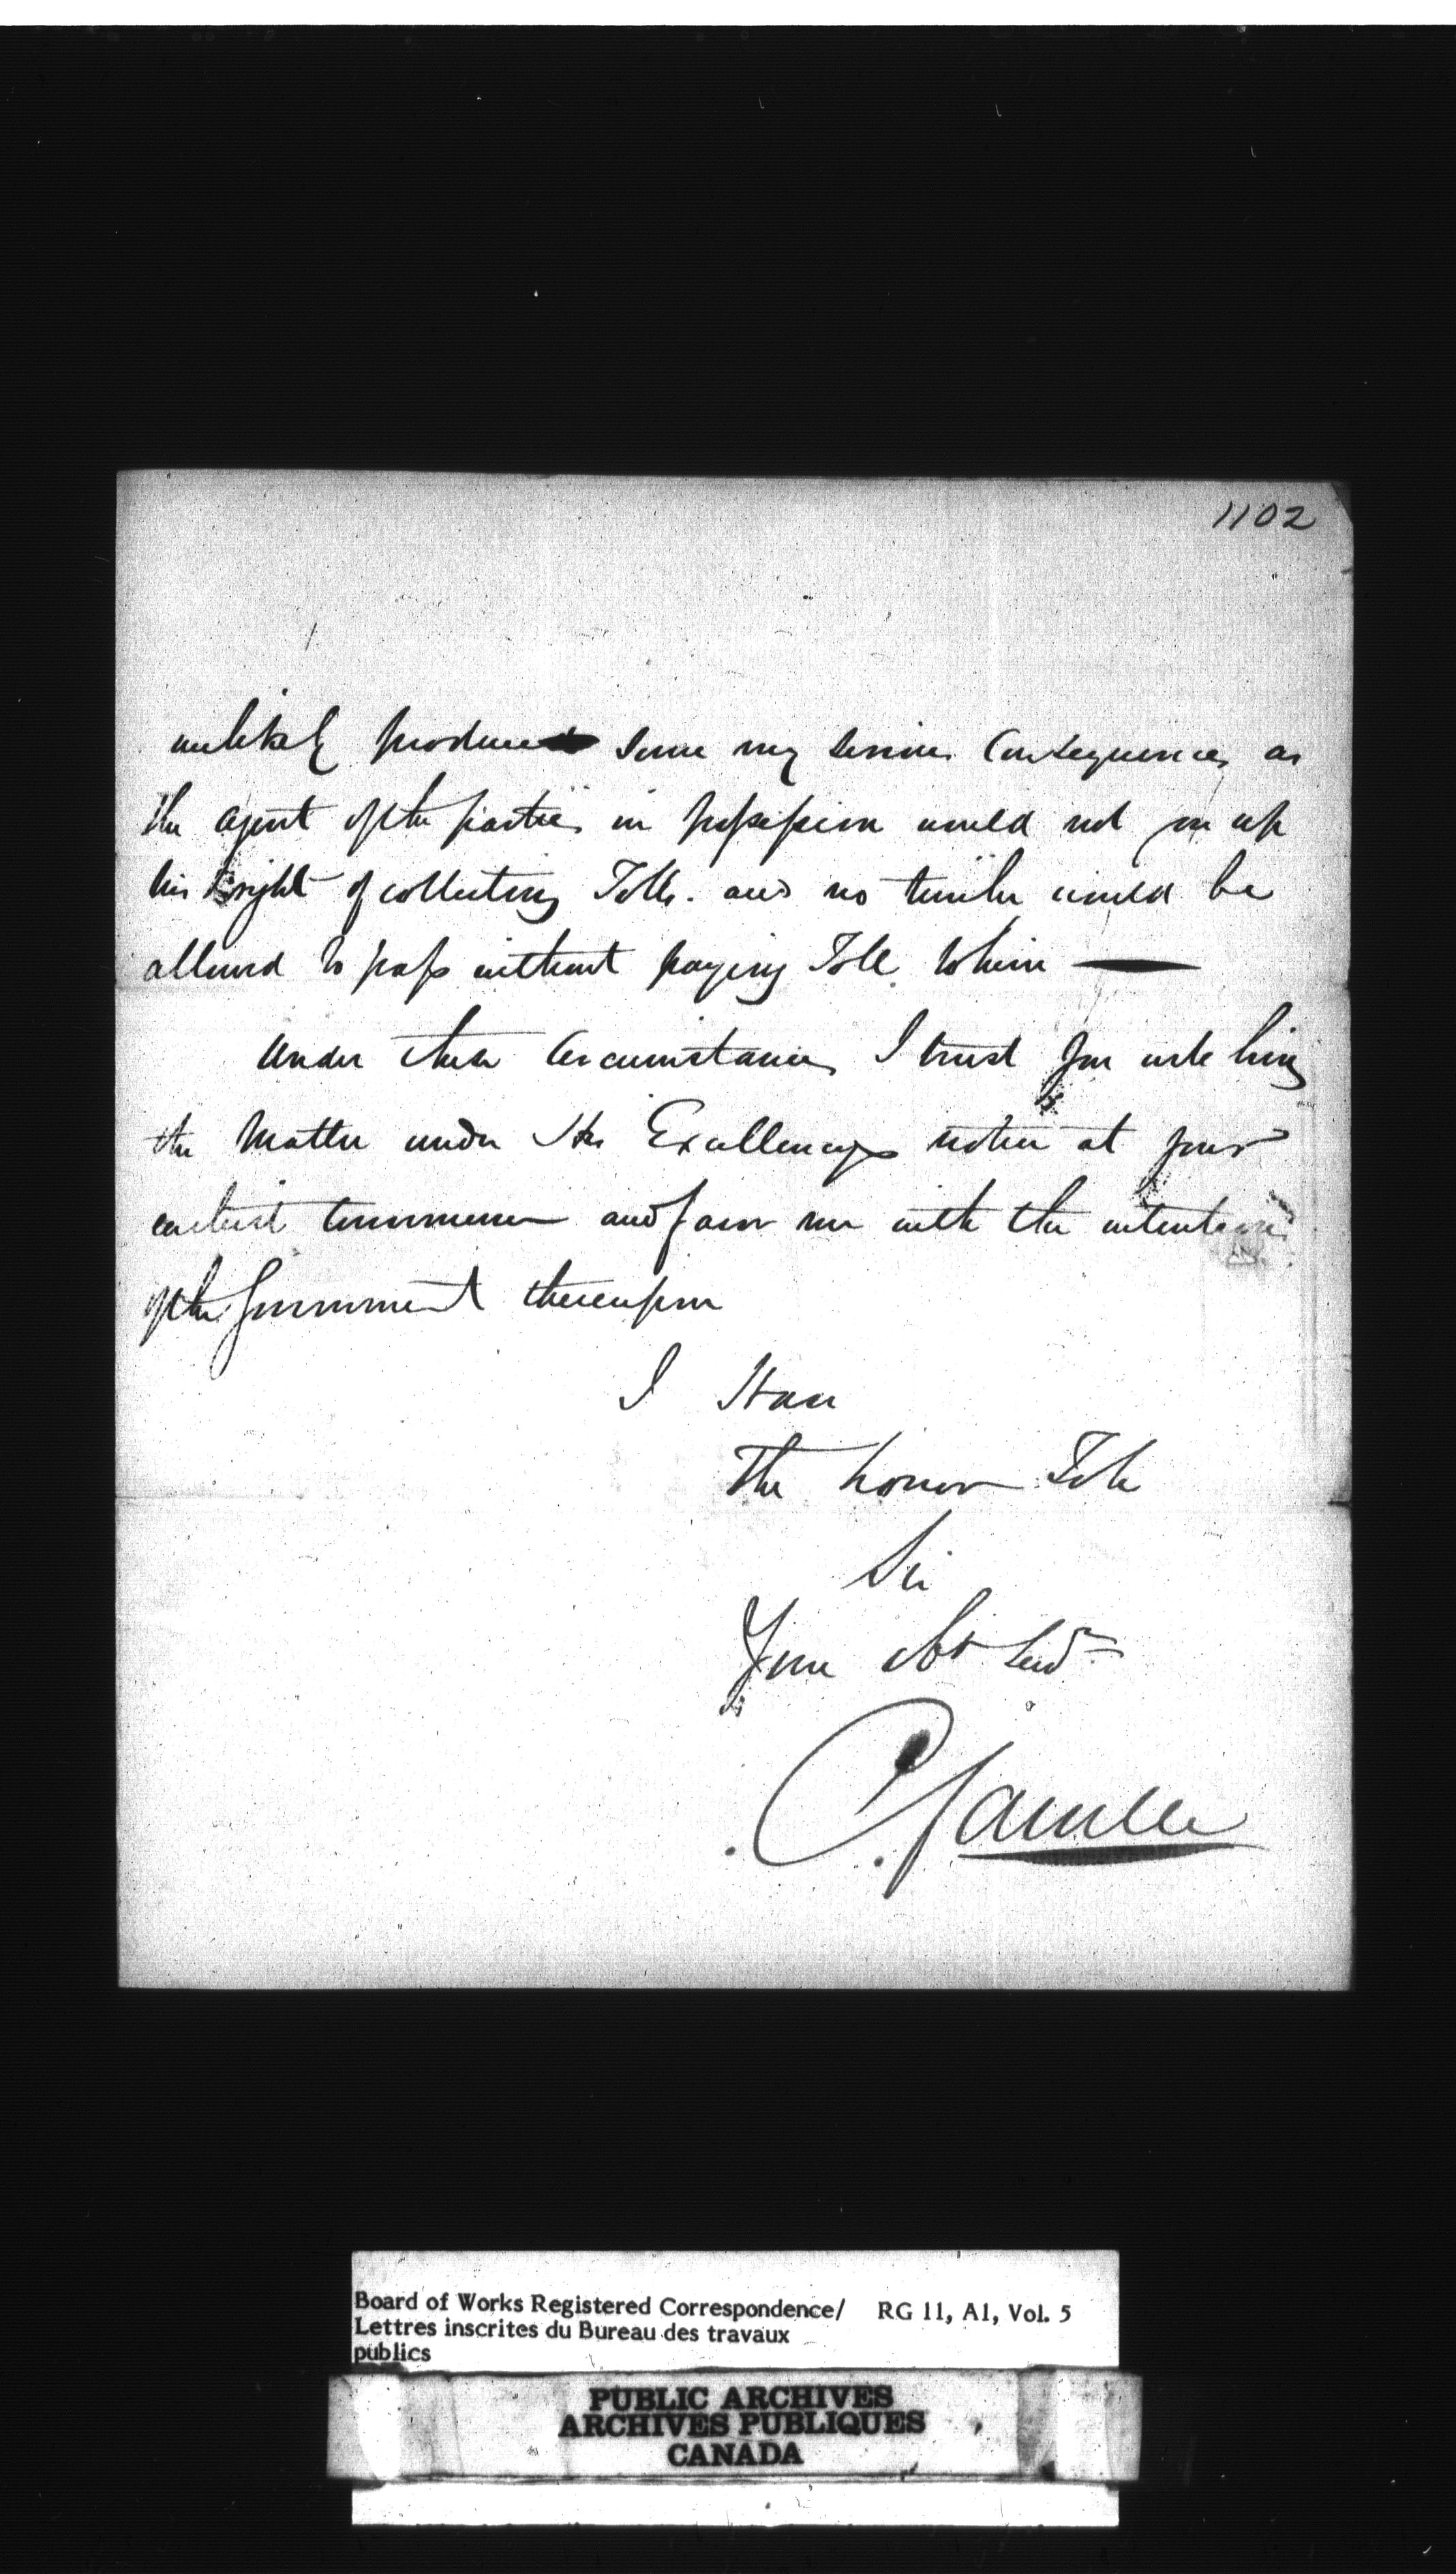 1102
unlikely produce some very serious Consequences as
the agent of the parties in possession would not give up
his right of collecting Tolls. and no timber would be
allowed to pass without paying Toll to him —
Under these Circumstances I trust you will bring
the Matter under His Excellencys notice at your
earliest convenience and favor me with the intentions
of the Government thereupon
I Have
The honor To be
Sir
Your Obt Servt
C
Board of Works Registered Correspondence/ RG 11, A1, Vol. 5
Lettres inscrites du Bureau des travaux
publics
PUBLIC ARCHIVES
ARCHIVES PUBLIQUES
CANADA